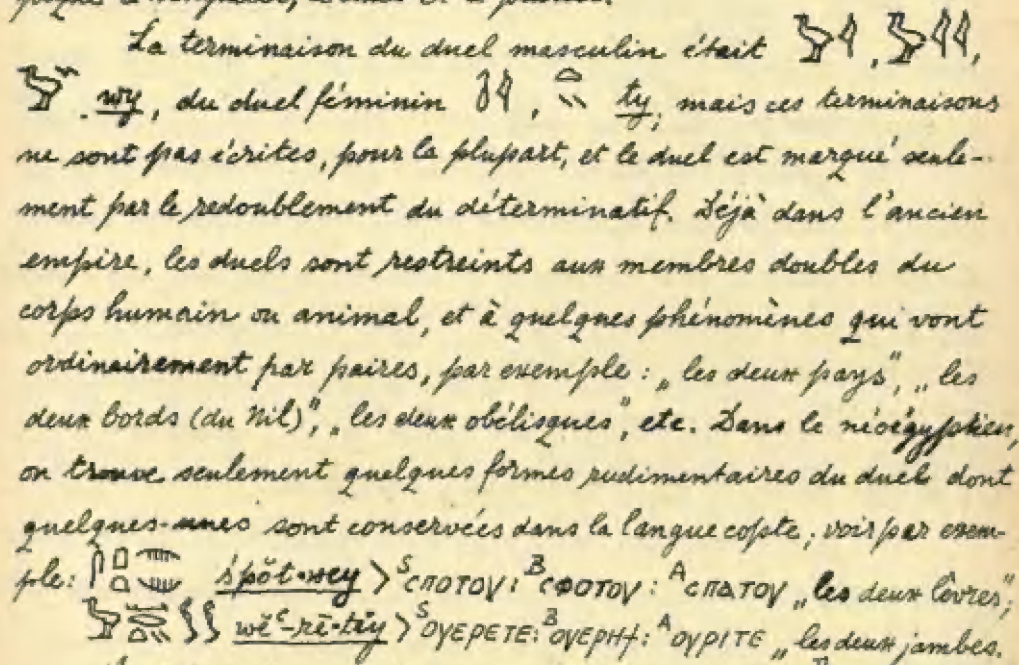 La terminaison du duel masculin était 𓅱𓇋, 𓅱𓇋𓇋,
𓅱𓏭. wy, du duel féminin 𓏏𓏭 ty, mais ces terminaisons
ne sont pas écrites, pour la plupart, et le duel est marqué seule-
ment par le redoublement du déterminatif. Déjà dans l'ancien
empire, les duels sont restreints aux membres doubles du
corps humain ou animal, et à quelques phénomènes qui vont
ordinairement par paires, par exemple : „les deux pays", „les
deux bords (du Nil)", „les deux obélisques", etc. Dans le néoégyptien,
on trouve seulement quelques formes rudimentaires du duel dont
quelques-unes sont conservées dans la langue copte; voir par exem-
ple: śpŏt-wey > ᔆⲥⲡⲟⲧⲟⲩ: ᴮⲥⲫⲟⲧⲟⲩ: ᴬⲥⲡⲁⲧⲟⲩ „les deux lèvres";
wĕᶜ-rē-tĕy > ᔆⲟⲩⲉⲣⲉⲧⲉ: ᴮⲟⲩⲉⲣⲏϯ: ᴬⲟⲩⲣⲓⲧⲉ „les deux jambes.